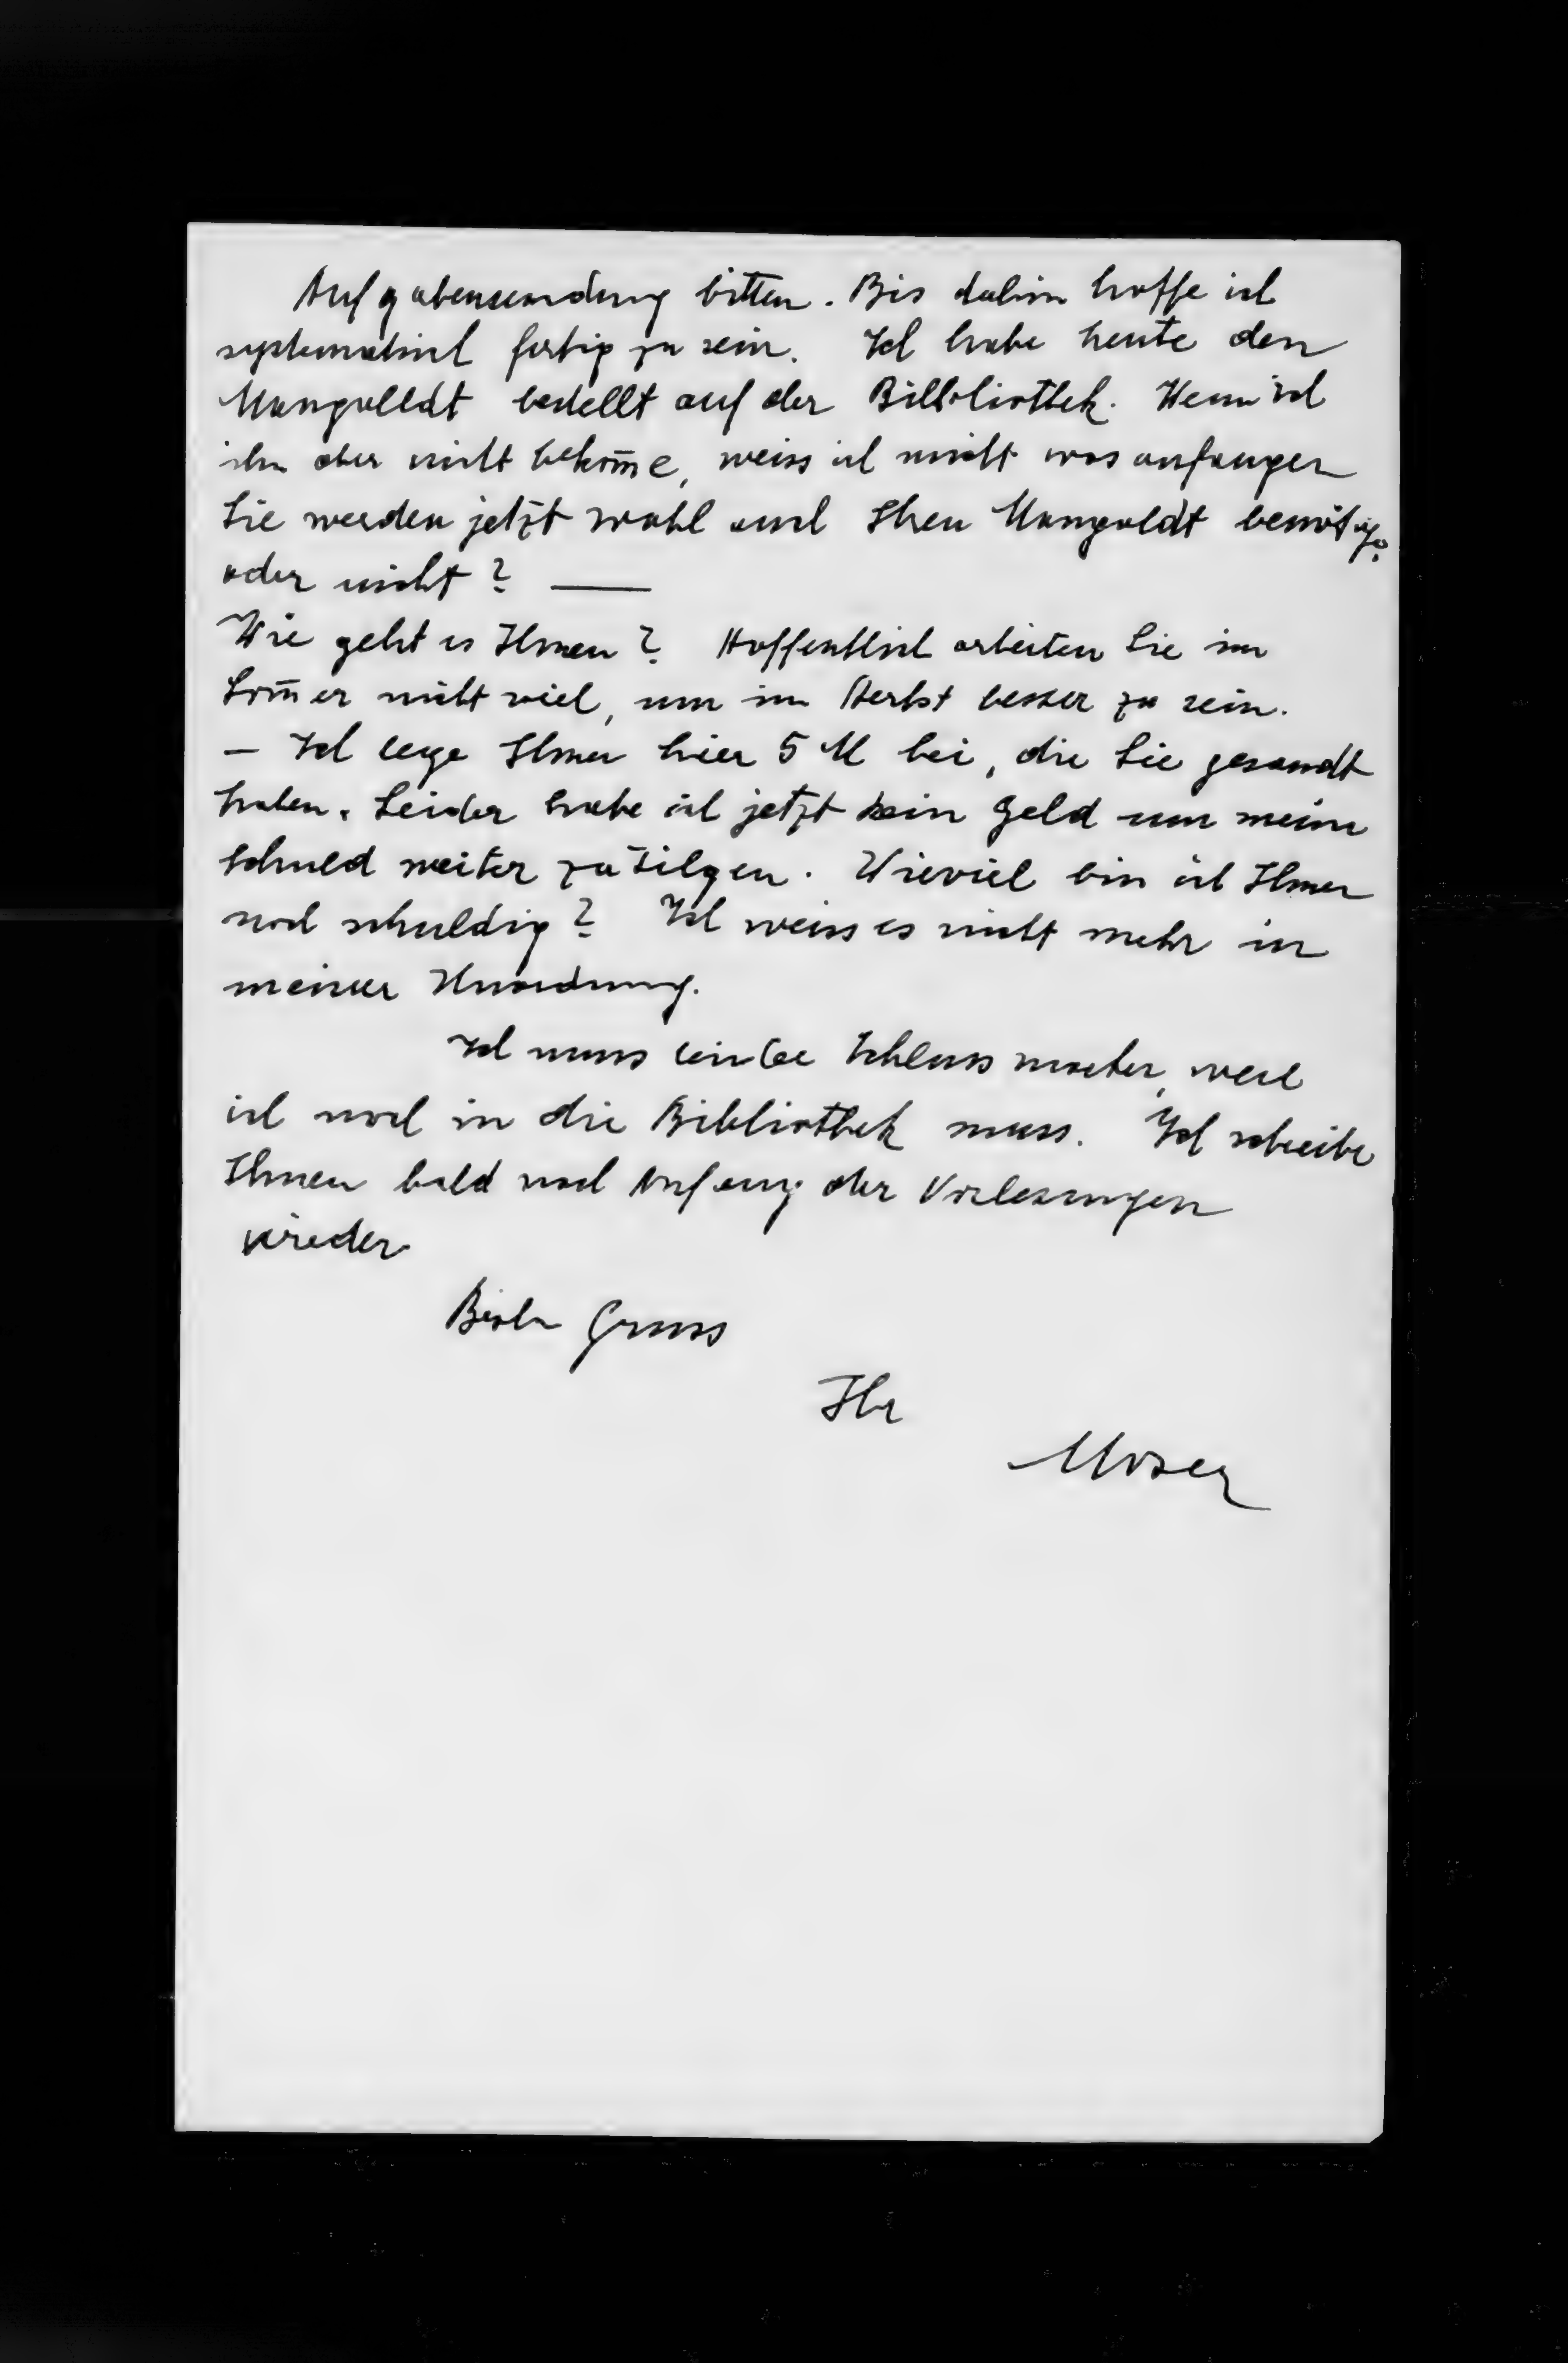 Aufgabensendung bitten. Bis dahin hoffe ich
systematisch fertig zu sein. Ich habe heute den
Mangolldt bestellt auf der Bilbliothek. Wenn ich
ihn aber nicht bekom̄e, weiss ich nicht was anfangen
Sie werden jetzt wohl auch Ihren Mangoldt benötigen
oder nicht? —
Wie geht es Ihnen? Hoffentlich arbeiten Sie im
Som̄er nicht viel, um im Herbst besser zu sein.
– Ich lege Ihnen hier 5 M bei, die Sie gesandt
haben. Leider habe ich jetzt kein Geld um meine
Schuld weiter zu tilgen. Wieviel bin ich Ihnen
noch schuldig? Ich weiss es nicht mehr in
meiner Unordnung.
Ich muss leider Schluss machen, weil
ich noch in die Bibliothek muss. Ich schreibe
Ihnen bald nach Anfang der Vorlesungen
wieder.
Besten Gruss
Ihr
Moser